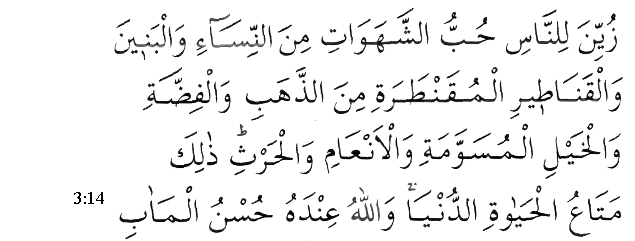 زُيِّنَ لِلنَّاسِ حُبُّ الشَّهَوَاتِ مِنَ النِّسَآءِ وَالْبَنٖينَ
وَالْقَنَاطٖيرِ الْمُقَنْطَرَةِ مِنَ الذَّهَبِ وَالْفِضَّةِ
وَالْخَيْلِ الْمُسَوَّمَةِ وَالْاَنْعَامِ وَالْحَرْثِؕ ذٰلِكَ
مَتَاعُ الْحَيٰوةِ الدُّنْيَاۚ وَاللّٰهُ عِنْدَهُ حُسْنُ الْمَاٰبِ 3:14